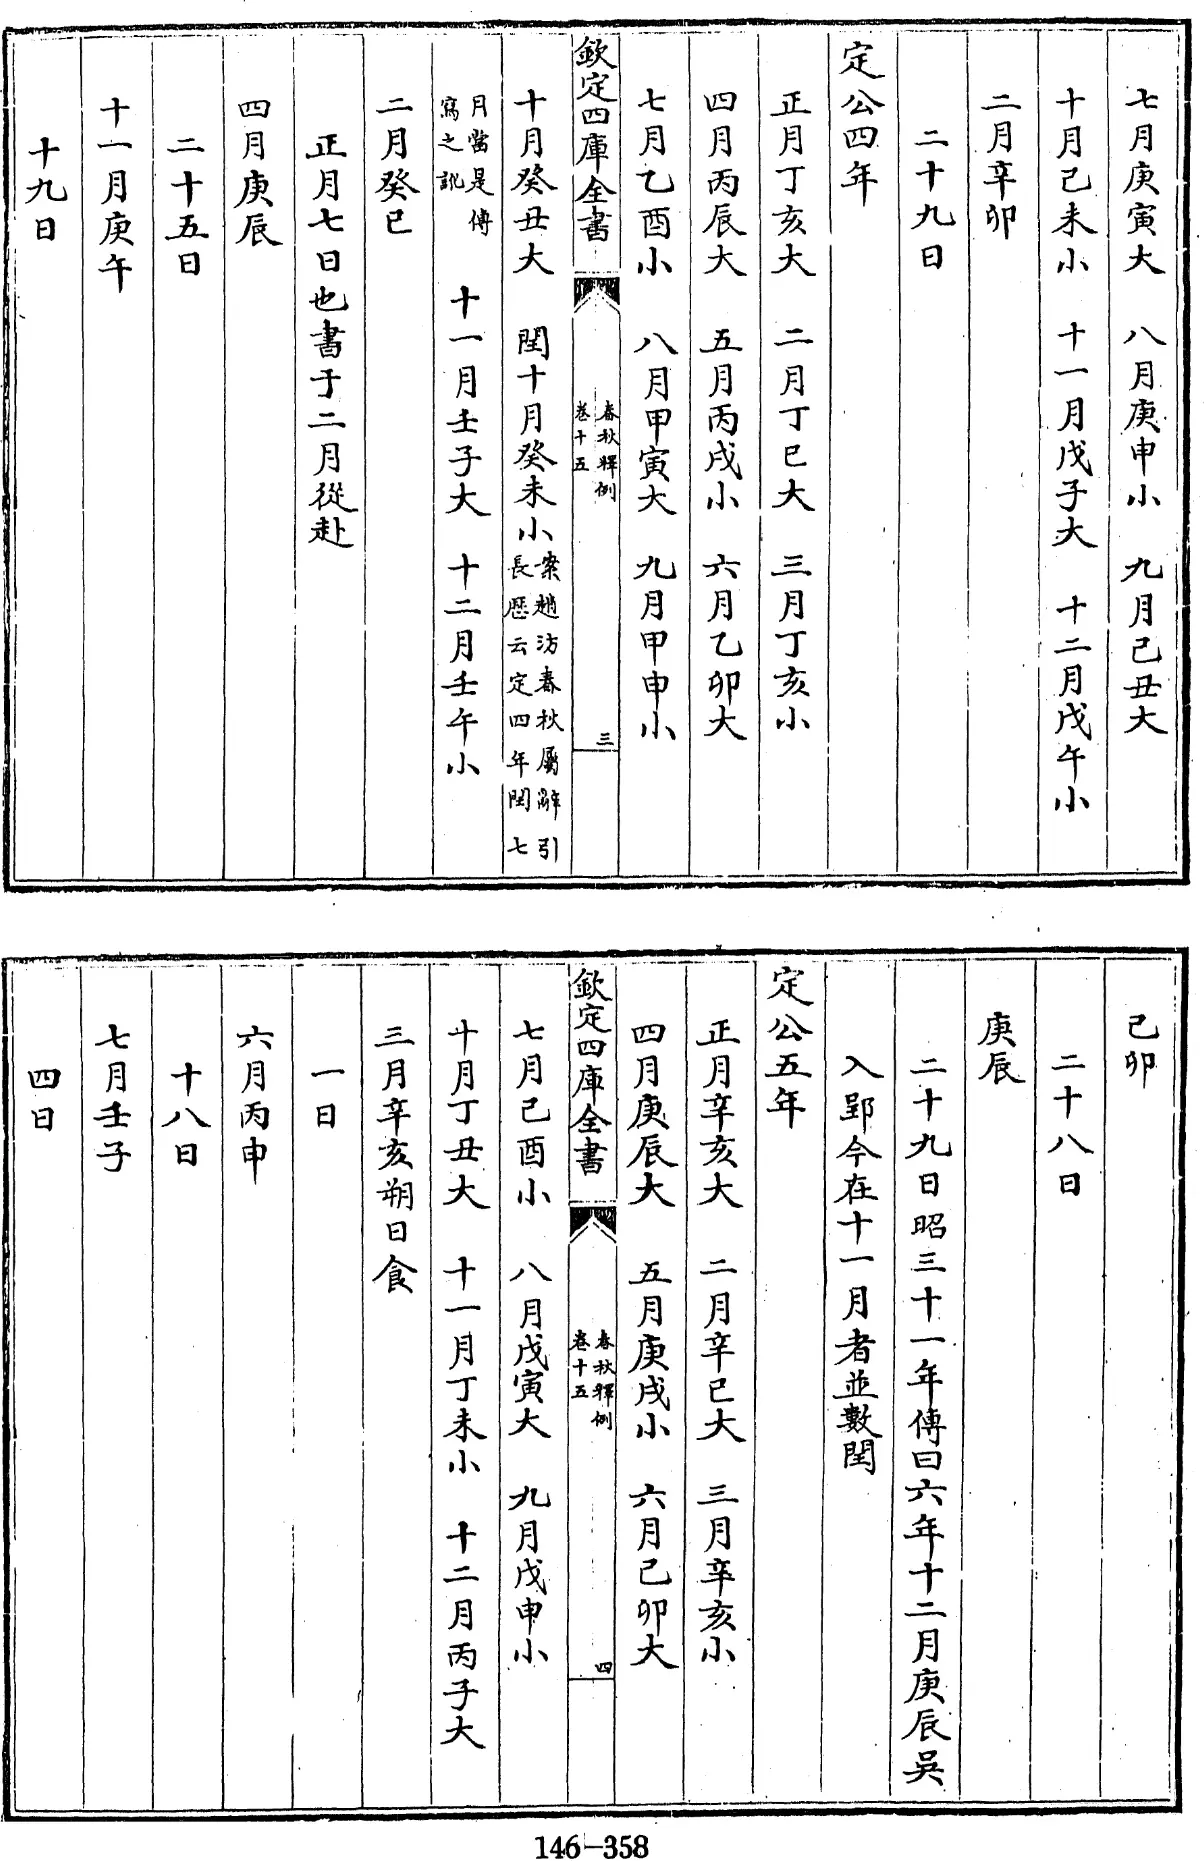 七月庚寅大　八月庚申小　九月己丑大
十月己未小　十一月戊子大　十二月戊午小
二月辛卯
二十九日
定公四年
正月丁亥大　二月丁巳大　三月丁亥小
四月丙辰大　五月丙戌小　六月乙卯大
七月乙酉小　八月甲寅大　九月甲申小
欽定四庫全書
春秋釋例
卷十五
三
十月癸丑大　閏十月癸未小案趙汸春秋屬辭引
長厯云定四年閏七
月當是傳
寫之訛　十一月壬子大　十二月壬午小
二月癸巳
正月七日也書于二月從赴
四月庚辰
二十五日
十一月庚午
十九日
己卯
二十八日
庚辰
二十九日昭三十一年傳曰六年十二月庚辰吳
入郢今在十一月者並數閏
定公五年
正月辛亥大　二月辛巳大　三月辛亥小
四月庚辰大　五月庚戌小　六月己卯大
欽定四庫全書
春秋釋例
卷十五
四
七月己酉小　八月戊寅大　九月戊申小
十月丁丑大　十一月丁未小　十二月丙子大
三月辛亥朔日食
一日
六月丙申
十八日
七月壬子
四日
146-358